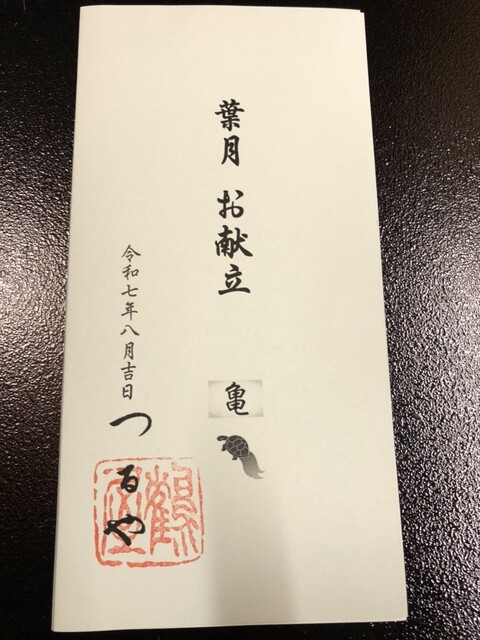 葉月 お献立
亀
令和七年八月吉日
つるや
鶴屋